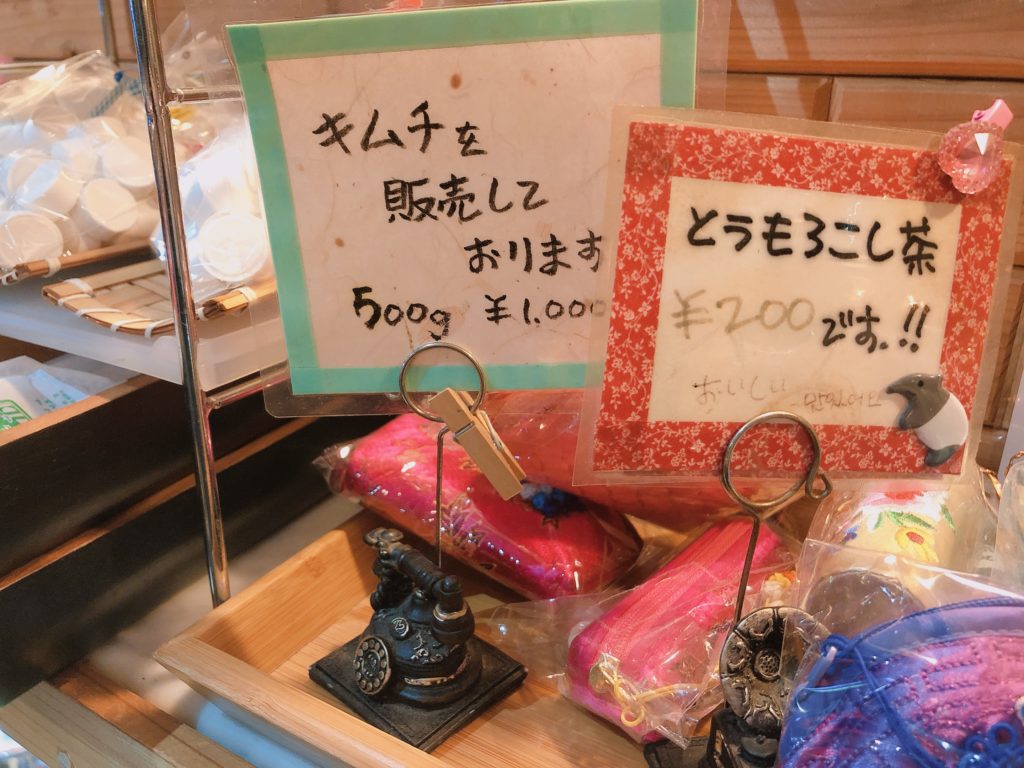 キムチを
販売して
おります
500g ¥1.000
とうもろこし茶
¥200です。!!
おいしい